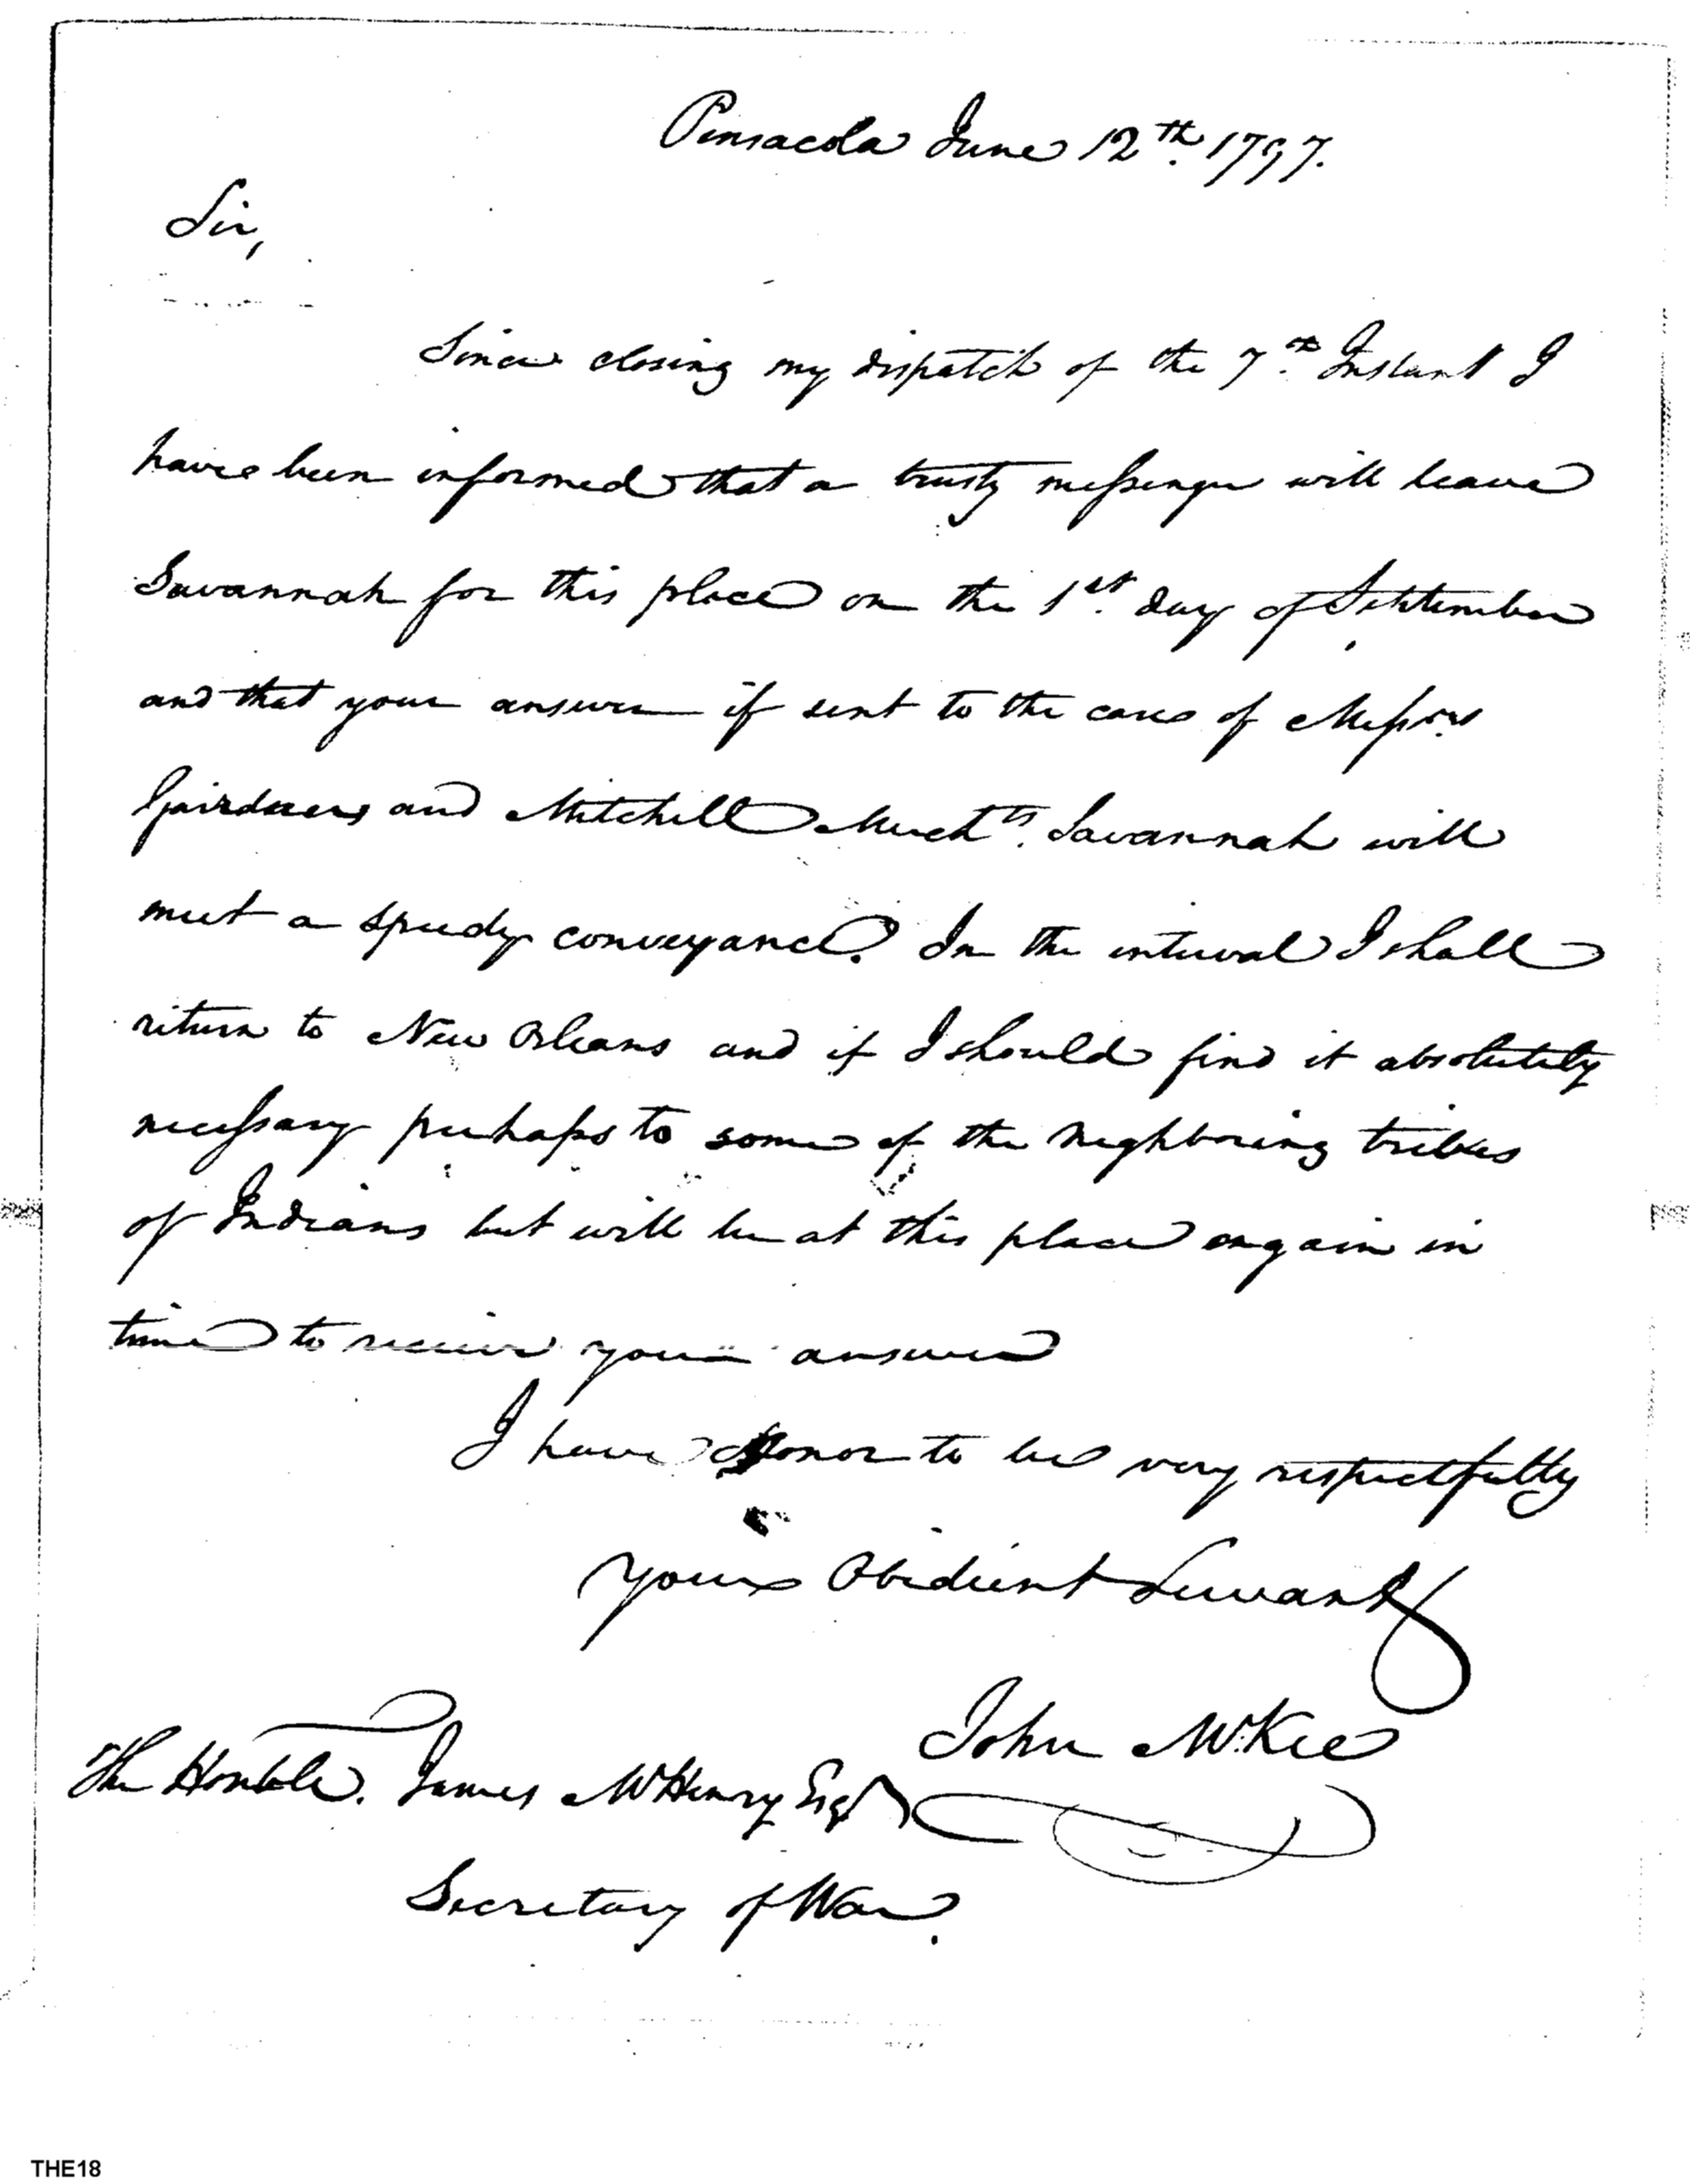 Pensacola June 12th. 1797.
Sir,
Since closing my dispatch of the 7th. Instant I
have been informed that a trusty messenger will leave
Savannah for this place on the 1st. day of September
and that your answer if sent to the care of Messrs.
Gairdners and Mitchell Mercht's. Savannah will
meet a speedy conveyance. In the interval I shall
return to New Orleans and if I should find it absolutely
necessary perhaps to some of the neighboring tribes
of Indians but will be at this place again in
time to receive your answer
I have honor to be very respectfully
your Obedient Servant
John McKee
The Honble. James McHenry Esqr
Secretary of War.
THE18